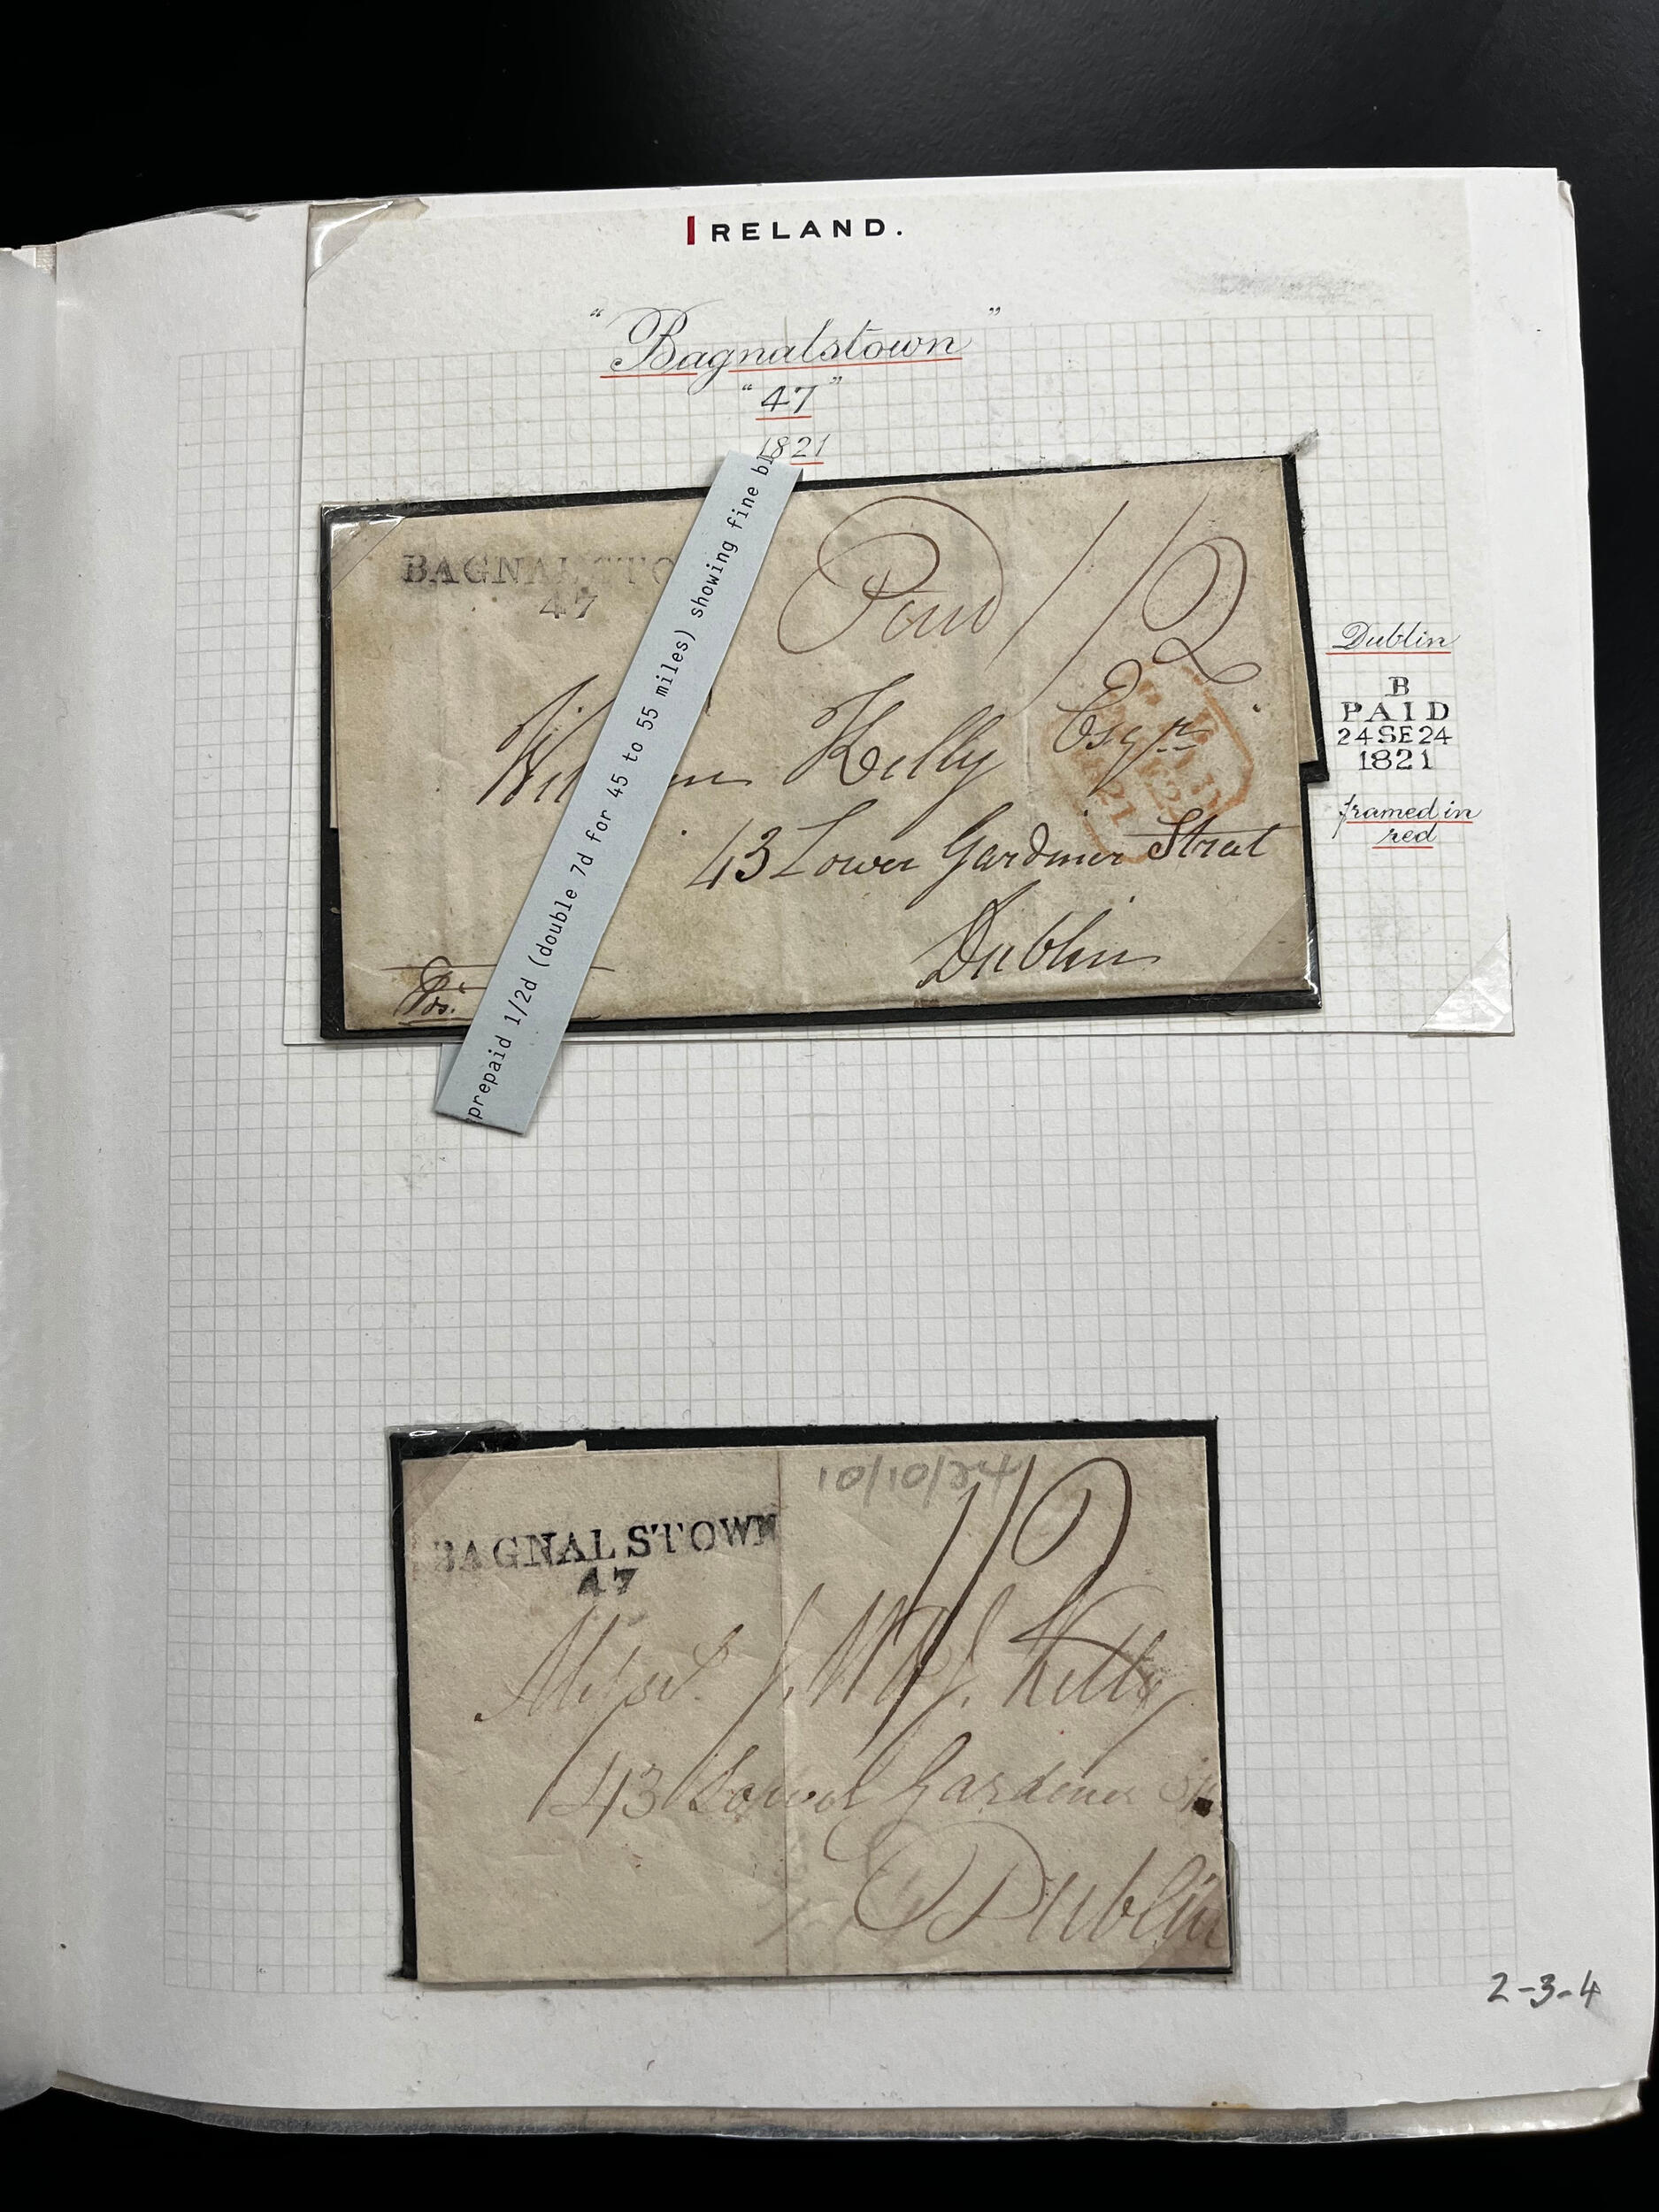 IRELAND.
"Bagnalstown"
"47"
1821
BAGNALSTO
47
Paid 1/2
Kelly Esqr
43 Lower Gardiner Street
Dublin
prepaid 1/2d (double 7d for 45 to 55 miles) showing fine bl
Dublin
B
PAID
24SE24
1821
framed in
red
10/10/24
BAGNALSTOWN
47
1/2
Kelly
43 Lower Gardiner
Dublin
2-3-4